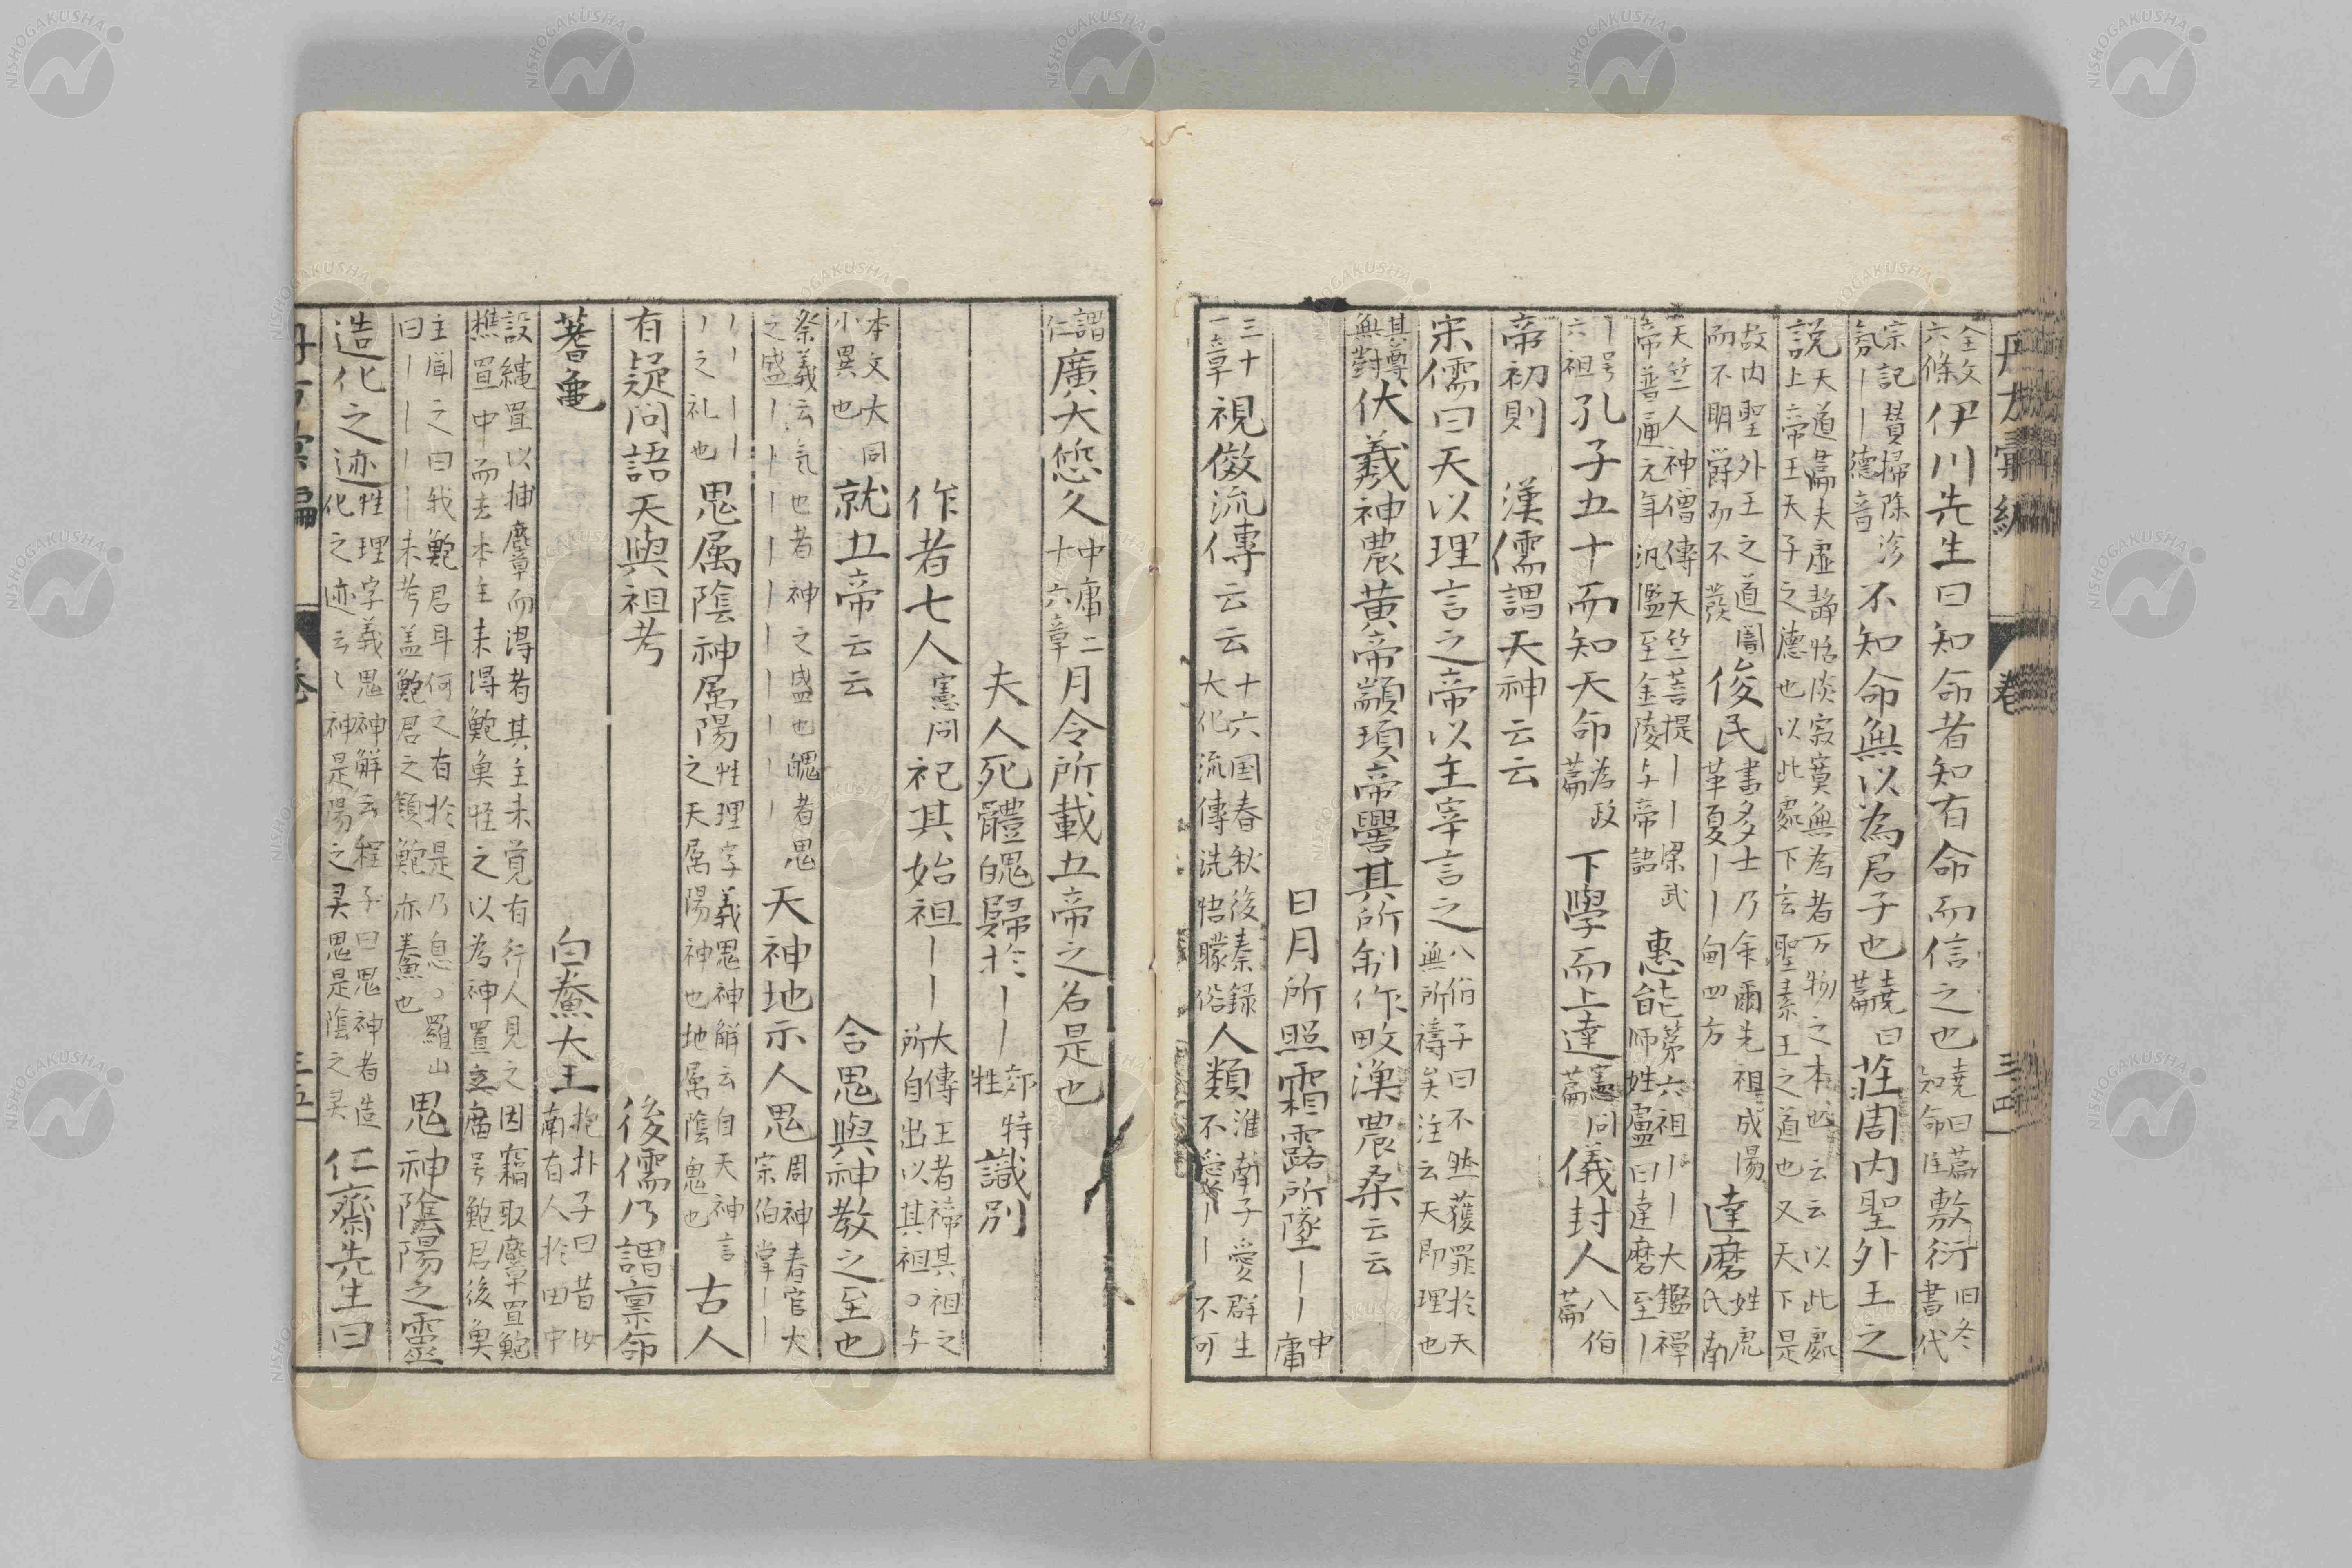 丹方彙編 卷 三四
仝文六條伊川先生曰知命者知有命而信之也堯曰篇知命註敷衍旧冬書代
宗記賛掃除氛｜｜德音不知命無以為君子也堯曰篇荘周内聖外王之
説天道篇夫虚静恬淡寂寞無為者万物之本也云云以此處上帝王天子之德也以此處下玄聖素王之道也又天下是
故内聖外王之道闇而不明欝而不發俊民書多士乃余爾先祖成湯革夏｜｜甸四方達磨姓虎氏南
天竺人神僧傳天竺菩提｜｜梁武帝普通元年汎濫至金陵与帝語惠能第六祖｜｜大鑑禪師姓盧曰達磨至｜
｜号六祖孔子五十而知天命為政篇下學而上達憲問篇儀封人八佾篇
帝初則 漢儒謂天神云云
宋儒曰天以理言之帝以主宰言之八佾子曰不然獲罪於天無所禱矣注云天即理也
其尊無對伏羲神農黄帝顓頊帝嚳其所制作畋漁農桑云云
日月所照霜露所墜｜｜中庸
三十一章視儌流傳云云十六国春秋後秦録大化流傳洗悟矇俗人類淮南子愛群生不愛｜｜不可
謂仁廣大悠久中庸二十六章月令所載五帝之名是也
夫人死體魄歸於｜｜郊特牲識別
作者七人憲問祀其始祖｜｜｜大傳王者禘其祖之所自出以其祖○与
本文大同小異也就五帝云云 合鬼與神教之至也
祭義云気也者神之盛也魄者鬼之盛｜｜｜｜｜｜｜｜天神地示人鬼周神春官大宗伯掌｜｜
｜｜｜｜｜之礼也鬼属陰神属陽性理字義鬼神解云自天神言之天属陽神也地属陰鬼也古人
有疑問語天與祖考 後儒乃謂稟命
蓍龜 白鮝大王抱朴子曰昔汝南有人於田中
設繩罝以捕麞而得者其主未覚有行人見之因竊取麞罝鮑樵罝中而去本主来得鮑魚怪之以為神置立廣号鮑君後魚
主聞之曰我鮑君耳何之有於是乃息○羅山曰｜｜｜｜未考盖鮑君之類鮑亦鮝也鬼神陰陽之靈
造化之迹性理字義鬼神解云程子曰鬼神者造化之迹云々神是陽之灵鬼是陰之灵仁齋先生曰